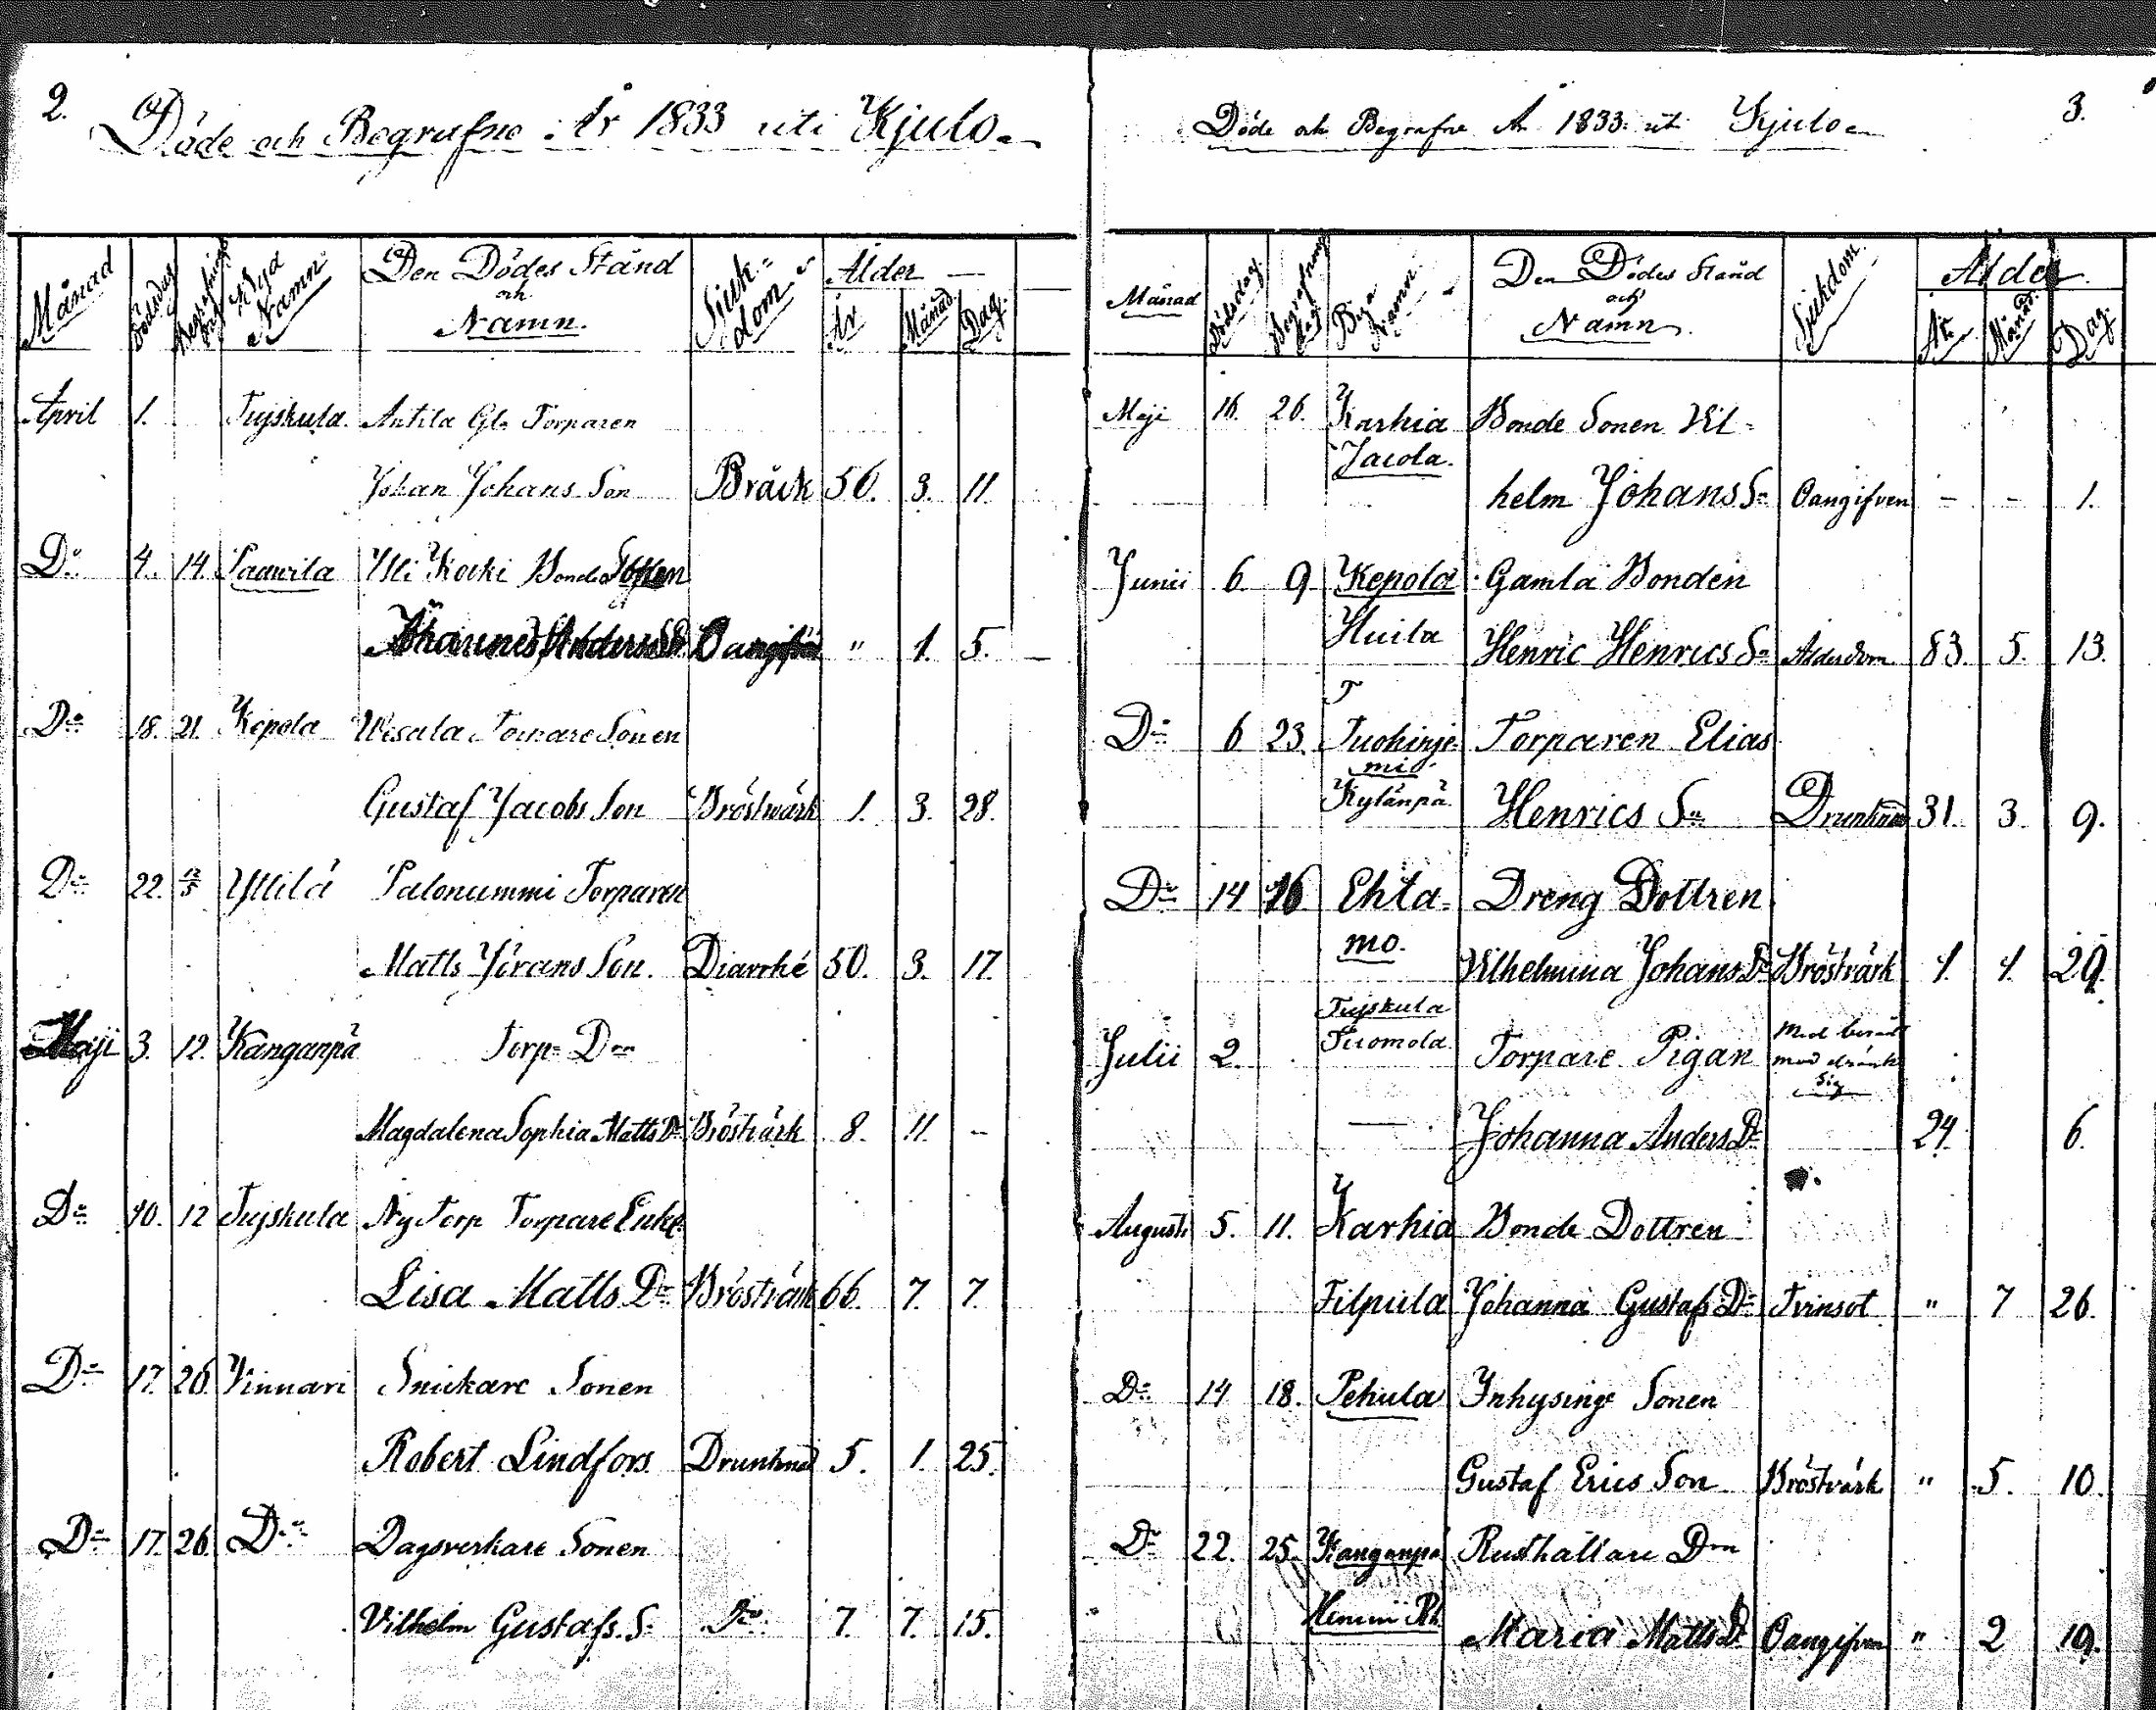 2.
Döde och Begrafne År 1833 uti Kjulo
Månad Dödsdag Begrafnings dag Bya Namn Den Dödes Stånd och Namn. Sjuk-dom Ålder
År Månad Dag.
April 1. Tujskula. Anttila Gl. Torparen
Johan Johans Son Bråck 56. 3. 11.
Do 4. 14. Paawila Yli Kocki Bonde Sonen
Johannes Anders S. Oangifven " 1. 5.
Do 18. 21. Kepola Uusala Torpare Sonen
Gustaf Jacobs Son Bröstwärk 1. 3. 28.
Do 22. 12/5 Yttilä Palonummi Torparen
Matts Jörans Son. Diarrhé 50. 3. 17.
Maji 3. 12. Kanganpä Torp. Don
Magdalena Sophia Matts Dr Bröstvärk 8. 11. -
Do 10. 12 Tujskula Ny Torp Torpare Enk.
Lisa Matts Dr Bröstvärk 66. 7. 7.
Do 17. 26. Vinnari Snickare Sonen
Robert Lindfors Drunknad 5. 1. 25.
Do 17. 26. Do Dagsverkare Sonen
Vilhelm Gustafs. S. Do 7. 7. 15.
3.
Döde och Begrafne År 1833. uti Kjulo
Månad Dödsdag. Begrafnings dag Bya Namn Den Dödes Stånd och Namn. Sjukdom. Ålder.
År Månad. Dag.
Maji 16. 26. Karhia Bonde Sonen Vil-
Jacola.
helm Johans Sn Oangifven - - 1.
Junii 6. 9 Kepola Gamla Bonden
Huila Henric Henrics Sn Ålderdom 83. 5. 13.
Do 6 23. Tuohinje- Torparen Elias
mi
Kylänpä. Henrics Sn Drunknad 31. 3 9.
Do 14 16 Ehta- Dreng Dottren
mo. Vilhelmina Johans Dr Bröstvärk 1. 1. 29.
Tujskula
Julii 2. Tuomola. Torpare Pigan Med beråd
mod dränkt
sig
Johanna Anders Dr 24. 6.
Augusti 5. 11. Karhia Bonde Dottren
Filpula Johanna Gustafs Dr Tvinsot " 7 26.
Do 14 18. Pehula Inhysings Sonen
Gustaf Erics Son Bröstvärk " 5. 10.
Do 22. 25. Kanganpä Rusthållare Don
Maria Matts Dr Oangifven " 2 19.